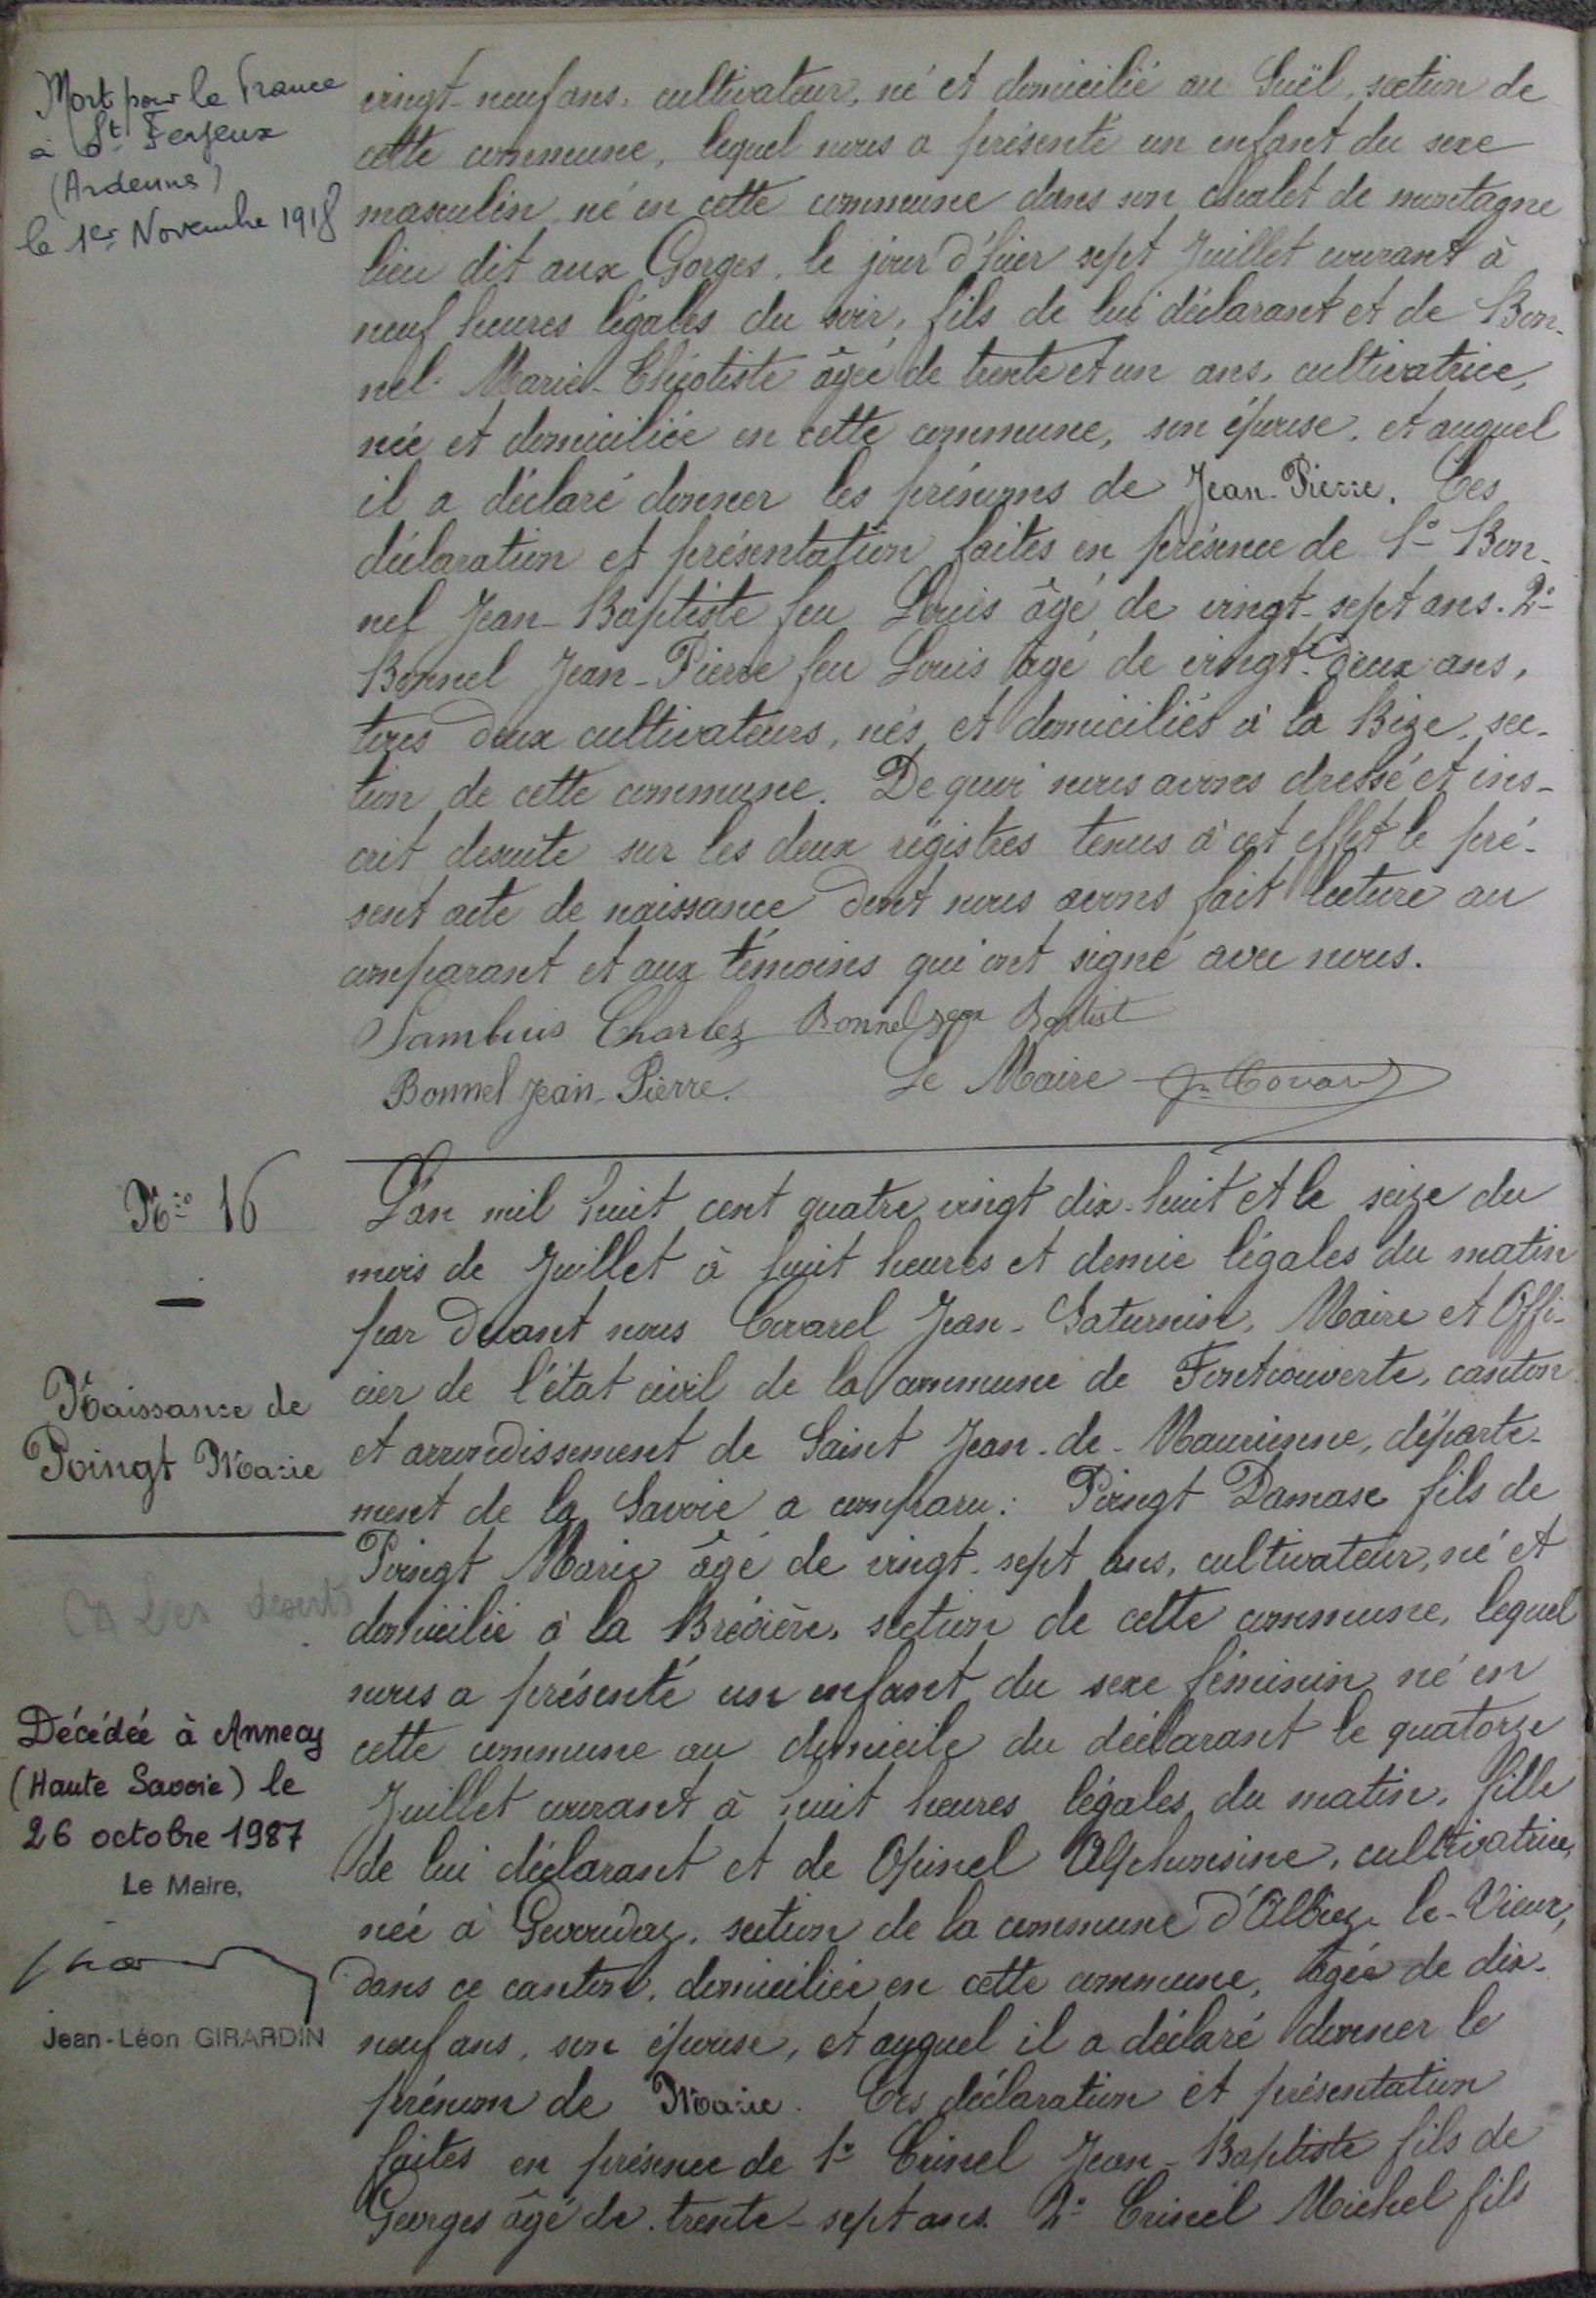 Mort pour la France
à St Ferjeux
(Ardennes)
le 1er Novembre 1918
vingt-neuf ans, cultivateur, né et domicilié au Suël, section de
cette commune, lequel nous a présenté un enfant du sexe
masculin né en cette commune dans son chalet de montagne
lieu dit aux Gorges, le jour d'hier sept Juillet courant à
neuf heures légales du soir, fils de lui déclarant et de Bon-
nel Marie-Théotiste âgée de trente et un ans, cultivatrice,
née et domiciliée en cette commune, son épouse, et auquel
il a déclaré donner les prénoms de Jean-Pierre. Ces
déclaration et présentation faites en présence de 1° Bon-
nel Jean-Baptiste feu Louis âgé de vingt-sept ans. 2°
Bonnel Jean-Pierre feu Louis âgé de vingt-deux ans,
tous deux cultivateurs, nés et domiciliés à la Bise, sec-
tion de cette commune. De quoi nous avons dressé et ins-
crit desuite sur les deux régistres tenus à cet effet le pré-
sent acte de naissance dont nous avons fait lecture au
comparant et aux témoins qui ont signé avec nous.
Sambuis Charles Bonnel Jean Batist
Bonnel Jean-Pierre. Le Maire
N° 16
Naissance de
Poingt Marie
Décédée à Annecy
(Haute Savoie) le
26 octobre 1987
Le Maire,
Jean-Léon GIRARDIN
L'an mil huit cent quatre vingt dix-huit et le seize du
mois de Juillet à huit heures et demie légales du matin
par devant nous Covarel Jean-Saturnin, Maire et Offi-
cier de l'état civil de la commune de Fontcouverte, canton
et arrondissement de Saint Jean-de-Maurienne, départe-
ment de la Savoie a comparu: Poingt Damase fils de
Poingt Marie âgé de vingt-sept ans, cultivateur, né et
domicilié à la Brévière, section de cette commune, lequel
nous a présenté un enfant du sexe féminin né en
cette commune au domicile du déclarant le quatorze
Juillet courant à huit heures légales du matin, fille
de lui déclarant et de Opinel Alphonsine, cultivatrice,
née à Gevoudaz, section de la commune d'Albiez-le-Vieux,
dans ce canton, domiciliée en cette commune, âgée de dix-
neuf ans, son épouse, et auquel il a déclaré donner le
prénom de Marie. Ces déclaration et présentation
faites en présence de 1° Crinel Jean-Baptiste fils de
Georges âgé de trente-sept ans. 2° Crinel Michel fils